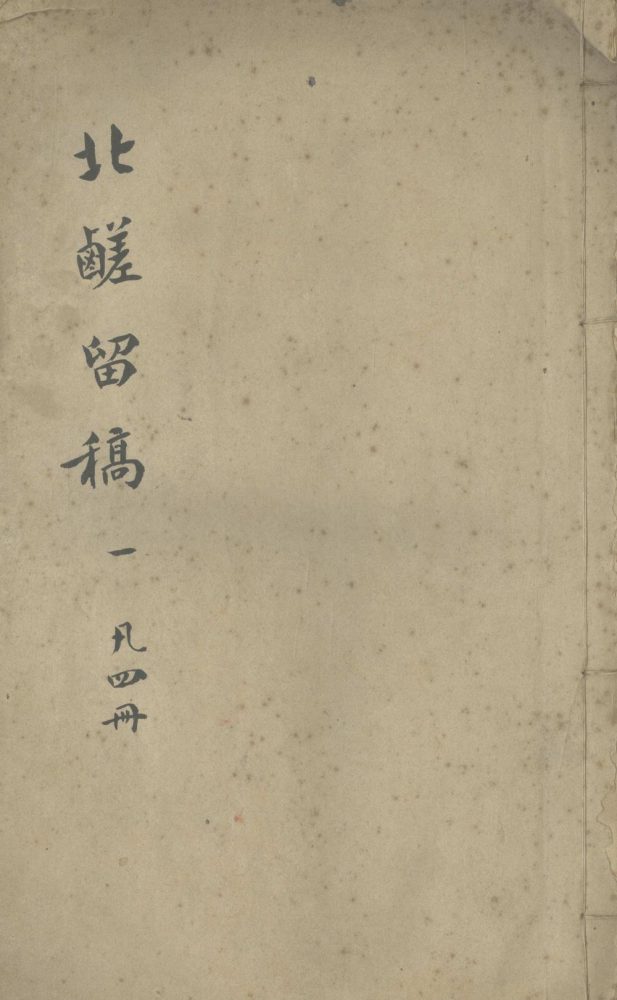 北鹺留稿 一 凡四冊